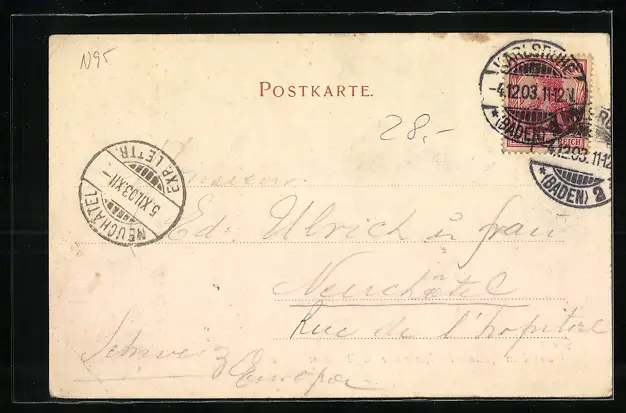 N95
POSTKARTE.
KARLSRUHE
-4.12.03. 11-12.V.
*(BADEN)
REICH
4.12.03. 11-12
*(BADEN) 2
28.-
NEUCHATEL
5.XII.03-XII-
EXP. LETTR.
Monsieur
Ed. Ulrich u frau
Neuchâtel
Rue de l'hopital
Schweiz
Europa